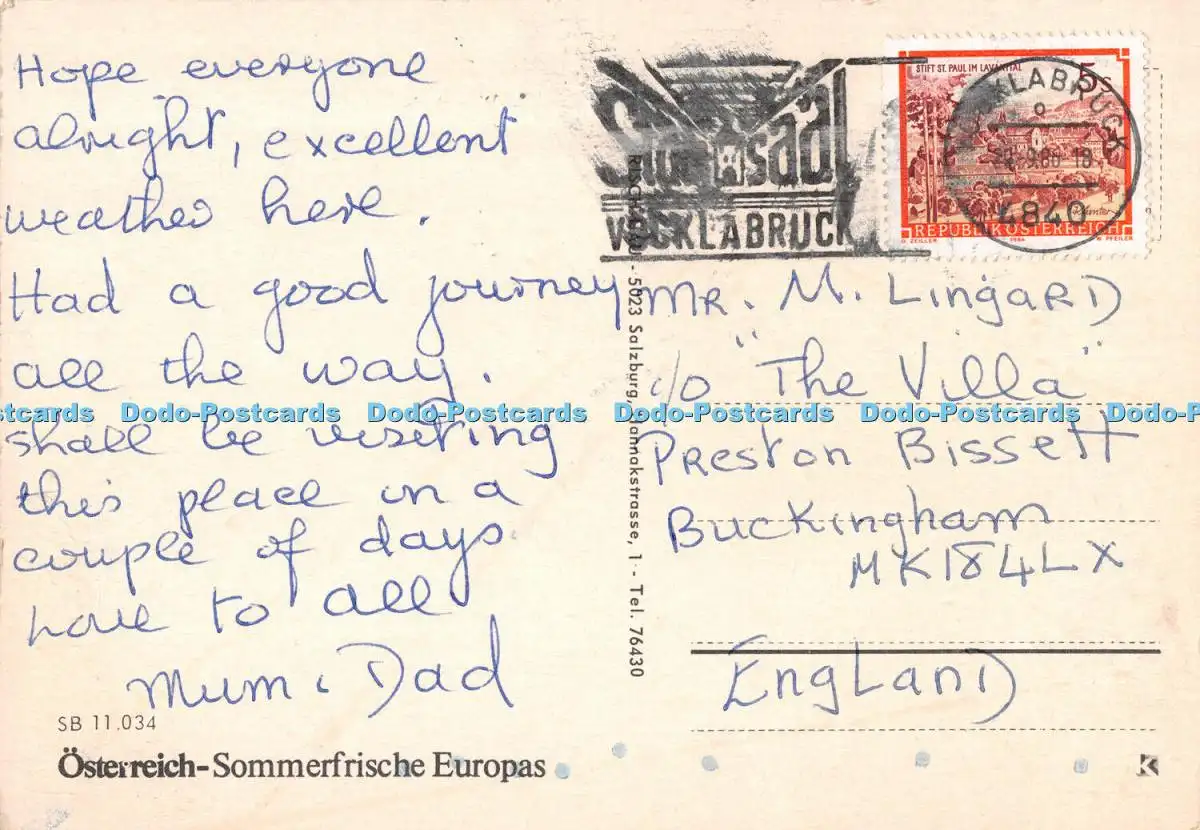 Hope everyone
alright, excellent
weather here.
Had a good journey
all the way.
shall be visiting
this place in a
couple of days.
love to all
Mum. Dad
SB 11.034
Österreich-Sommerfrische Europas
5023 Salzburg, Hannakstrasse, 1 - Tel. 76430
VÖCKLABRUCK
STIFT ST. PAUL IM LAVANTTAL
5 S
REPUBLIK ÖSTERREICH
O ZEILLER 1986 W PFEILER
VÖCKLABRUCK
4840
Mr. M. Lingard
c/o "The Villa"
Preston Bissett
Buckingham
MK18 4LX
England
K
Dodo-Postcards Dodo-Postcards Dodo-Postcards Dodo-Postcards